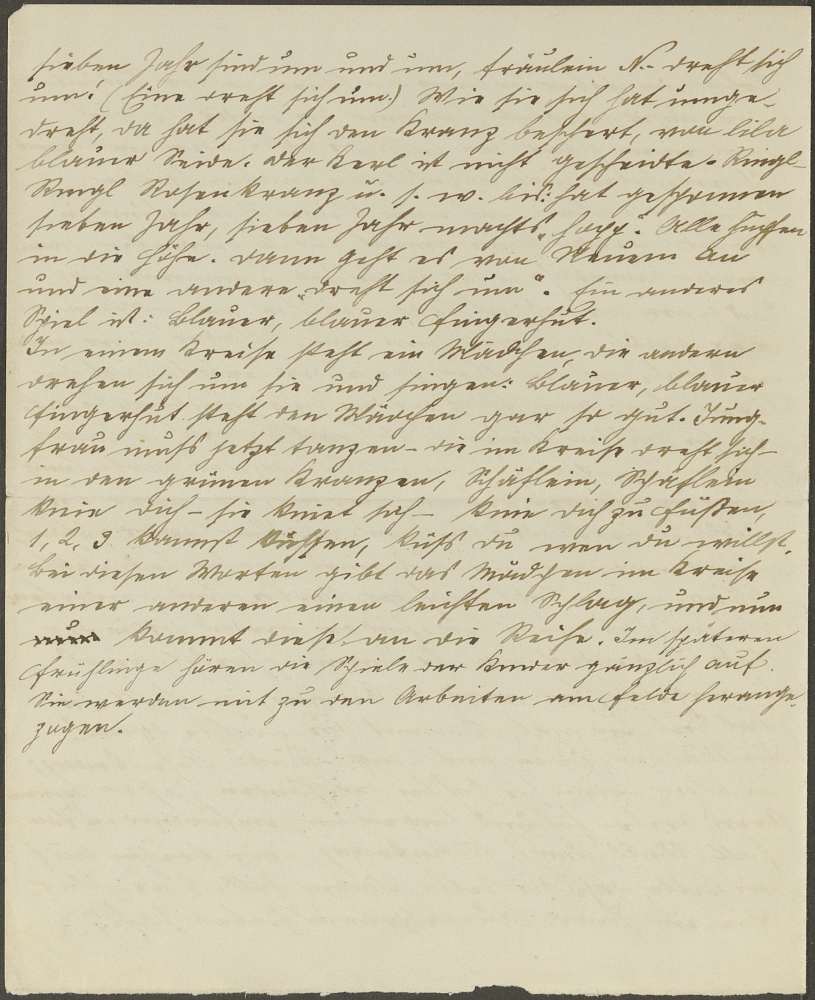 sieben Jahr sind um und um, Fräulein N.- dreht sich
um! (Eine dreht sich um.) Wie sie sich hat umge-
dreht, da hat sie sich den Kranz beschert, von lila
blauer Seide. Der Kerl ist nicht gescheidte. Ringl-
Ringl Rosenkranz u. s. w. bis: hat gesponnen
sieben Jahr, sieben Jahr machts „hopp“. Alle hupfen
in die Höhe. Dann geht es von Neuem an
und eine andere „dreht sich um“. Ein anderes
Spiel ist: Blauer, blauer Fingerhut.
In einem Kreise steht ein Mädchen, die andern
drehen sich um sie und singen: Blauer, blauer
Fingerhut steht den Mädchen gar so gut. Jung-
frau muß jetzt tanzen - die im Kreise dreht sich -
in den grünen Kranzen, Schäflein, Schäflein
knie dich - sie kniet sich - knie dich zu Füßen,
1, 2, 3 kannst küssen, küß du wen du willst.
Bei diesen Worten gibt das Mädchen im Kreise
einer anderen einen leichten Schlag, und nun
kommt diese an die Reihe. Im späteren
Frühlinge hören die Spiele der Kinder gänzlich auf.
Sie werden mit zu den Arbeiten am Felde herange-
zogen.